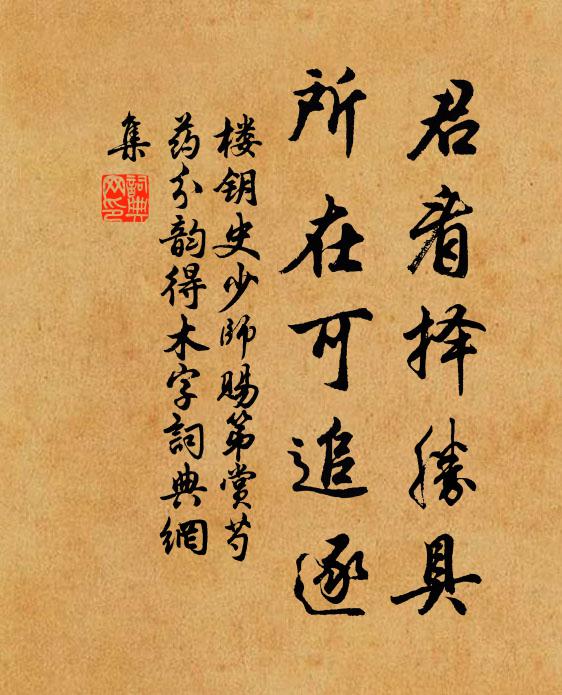 君看择胜具
所在可追逐
楼钥史少师赐第赏芍
药分韵得木字词典網
集
詞典
网印